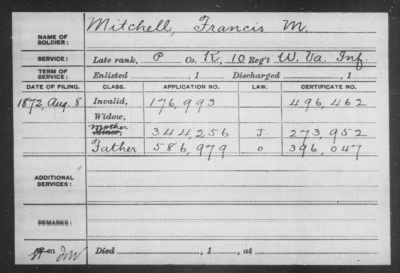 NAME OF SOLDIER: Mitchell, Francis M.
SERVICE: Late rank, P Co. K, 10 Reg't W. Va. Inf.
TERM OF SERVICE: Enlisted , 1 Discharged , 1
DATE OF FILING. CLASS. APPLICATION NO. LAW. CERTIFICATE NO.
1872, Aug. 8 Invalid, 176,993 496,462
Widow,
Mother
Minor, 344,256 J. 273,952
Father 586,979 O 396,047
ADDITIONAL SERVICES:
REMARKS:
Died , 1 , at